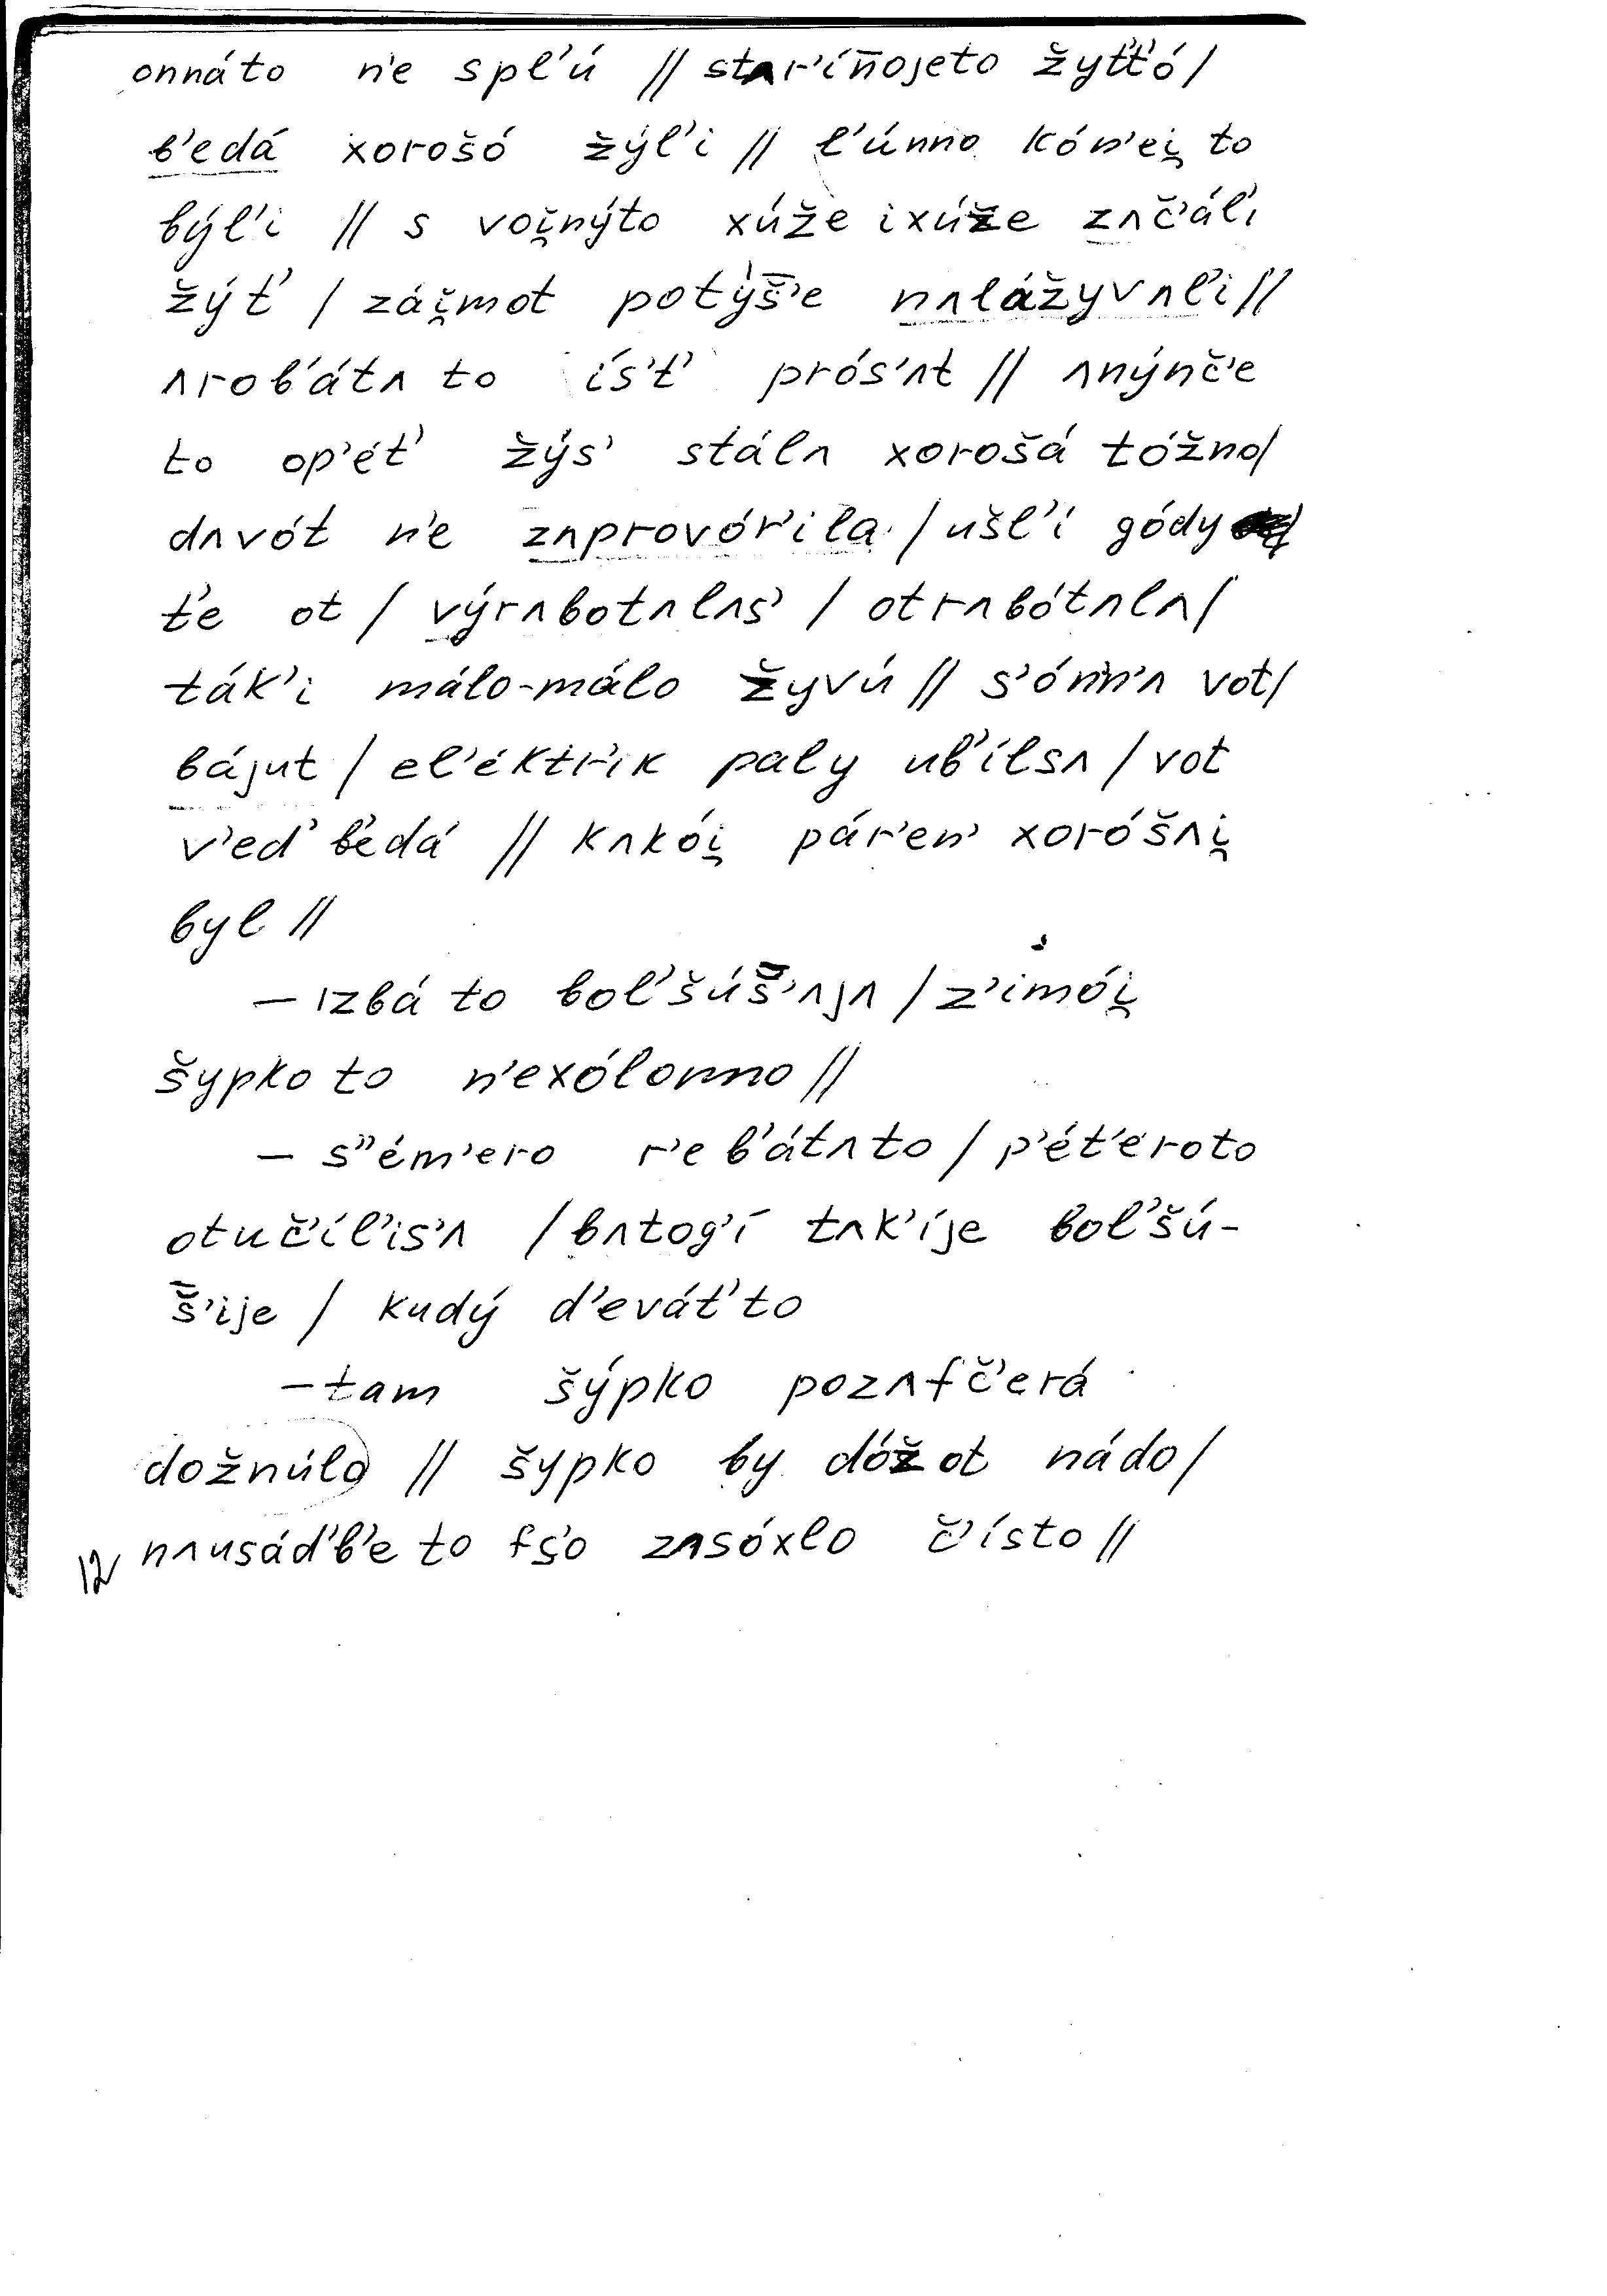 onnáto n'e spl'ú // stʌr'ín̄ojeto žyt't'ó /
b'edá xorošó žýl'i // l'únno kón'ei̯ to
býl'i // s voi̯nýto xúže ixúže zʌč'ál'i
žýt' / zái̯mot potýš̄'e nʌlážyvʌl'i //
ʌrob'átʌ to ís't' prós'ʌt // ʌnýnč'e
to op'ét' žýs' stálʌ xorošá tóžno /
dʌvót n'e zʌprovór'ila / ušl'í gódy
t'e ot / výrʌbotʌlʌs' / otrʌbótʌlʌ /
ták'i málo-málo žyvú // s'ón'n'ʌ vot /
bájut / el'éktr'ik paly ub'ílsʌ / vot
v'ed' b'edá // kʌkói̯ pár'en' xoróšʌi̯
byl //
– izbá to bol'šúš̄'ʌjʌ / z'imói̯
šypko to n'exólonno //
– s"ém'ero r'eb'átʌto / p'ét'eroto
otuč'íl'is'ʌ / bʌtog'í tʌk'íje bol'šú-
š̄'ije / kudý d'evát'to
– tam šýpko pozʌfč'erá
dožnúlo // šypko by dóžot nádo /
nʌusád'b'e to fs'o zʌsóxlo č'ísto //
12